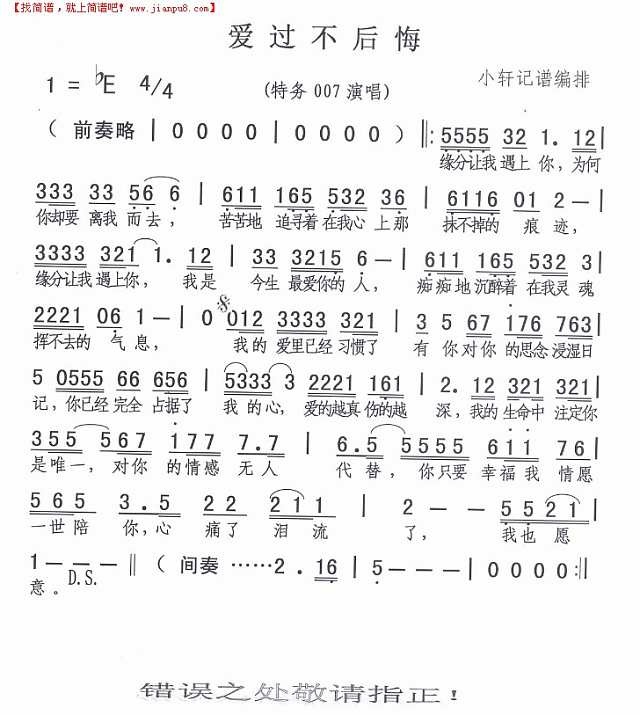 【找简谱，就上简谱吧！www.jianpu8.com】
爱过不后悔
1 = ♭E 4/4 (特务 007 演唱) 小轩记谱编排
( 前奏略 | 0 0 0 0 | 0 0 0 0 ) ‖: 5555 32 1. 12 |
缘分让我 遇上 你，为何
333 33 56 6 | 611 165 532 36 | 6116 01 2 – |
你却要 离我 而去， 苦苦地 追寻着 在我心 上那 抹不掉的 痕 迹，
3333 321 1. 12 | 33 3215 6 – | 611 165 532 3 |
缘分让我 遇上你， 我是 今生 最爱你的 人， 痴痴地 沉醉着 在我灵 魂
2221 06 1 – | 0 012 3333 321 | 3 5 67 176 763 |
挥不去的 气 息， 我的 爱里已经 习惯了 有 你 对你 的思念 浸湿日
5 0555 66 656 | 5333 3 2221 161 | 2. 12 321 321 |
记，你已经 完全 占据了 我 的心，爱的越真 伤的越 深，我的 生命中 注定你
355 567 177 7.7 | 6.5 5555 611 76 |
是唯一，对你 的情感 无人 代替，你只要 幸福我 情愿
565 3.5 22 211 | 2 – – 5521 |
一世陪 你，心 痛了 泪流 了， 我也愿
1 – – – ‖ ( 间奏 ······2. 16 | 5 – – – | 0 0 0 0 :‖
意。 D.S.
错误之处敬请指正！